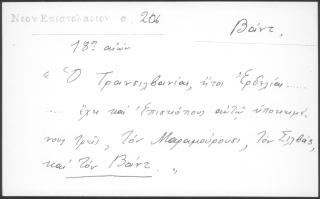 Νεον Επιστολαριον σ. 206
Βάντ.
18ος αιών
« Ὁ Τρανσιλβανίας, ἤτοι Ἐρδελίας.....
..... ἔχει καὶ Ἐπισκόπους αὐτῷ ὑποκειμέ-
νους τρεῖς, Τὸν Μαραμούρουσι, τὸν Σιλβάς,
καὶ τὸν Βάντ. „